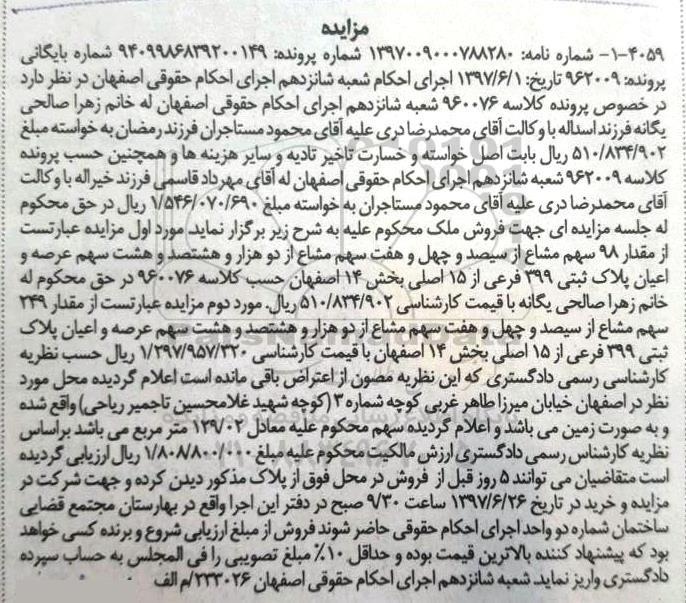 مزایده
۱-۴۰۵۹- شماره نامه: ۱۳۹۷۰۰۹۰۰۰۷۸۸۲۸۰ شماره پرونده: ۹۴۰۹۹۸۶۸۳۹۲۰۰۱۴۹ شماره بایگانی
پرونده: ۹۶۲۰۰۹ تاریخ: ۱۳۹۷/۶/۱ اجرای احکام شعبه شانزدهم اجرای احکام حقوقی اصفهان در نظر دارد
در خصوص پرونده کلاسه ۹۶۰۰۷۶ شعبه شانزدهم اجرای احکام حقوقی اصفهان له خانم زهرا صالحی
یگانه فرزند اسداله با وکالت آقای محمدرضا دری علیه آقای محمود مستاجران فرزند رمضان به خواسته مبلغ
۵۱۰/۸۳۴/۹۰۲ ریال بابت اصل خواسته و خسارت تاخیر تادیه و سایر هزینه ها و همچنین حسب پرونده
کلاسه ۹۶۲۰۰۹ شعبه شانزدهم اجرای احکام حقوقی اصفهان له آقای مهرداد قاسمی فرزند خیراله با وکالت
آقای محمدرضا دری علیه آقای محمود مستاجران به خواسته مبلغ ۱/۵۴۶/۰۷۰/۶۹۰ ریال در حق محکوم
له جلسه مزایده ای جهت فروش ملک محکوم علیه به شرح زیر برگزار نماید. مورد اول مزایده عبارتست
از مقدار ۹۸ سهم مشاع از سیصد و چهل و هفت سهم مشاع از دو هزار و هشتصد و هشت سهم عرصه و
اعیان پلاک ثبتی ۳۹۹ فرعی از ۱۵ اصلی بخش ۱۴ اصفهان حسب کلاسه ۹۶۰۰۷۶ در حق محکوم له
خانم زهرا صالحی یگانه با قیمت کارشناسی ۵۱۰/۸۳۴/۹۰۲ ریال. مورد دوم مزایده عبارتست از مقدار ۲۴۹
سهم مشاع از سیصد و چهل و هفت سهم مشاع از دو هزار و هشتصد و هشت سهم عرصه و اعیان پلاک
ثبتی ۳۹۹ فرعی از ۱۵ اصلی بخش ۱۴ اصفهان با قیمت کارشناسی ۱/۲۹۷/۹۵۷/۳۲۰ ریال حسب نظریه
کارشناسی رسمی دادگستری که این نظریه مصون از اعتراض باقی مانده است اعلام گردیده محل مورد
نظر در اصفهان خیابان میرزا طاهر غربی کوچه شماره ۳ (کوچه شهید غلامحسین تاجمیر ریاحی) واقع شده
و به صورت زمین می باشد و اعلام گردیده سهم محکوم علیه معادل ۱۳۹/۰۳ متر مربع می باشد براساس
نظریه کارشناس رسمی دادگستری ارزش مالکیت محکوم علیه مبلغ ۱/۸۰۸/۸۰۰/۰۰۰ ریال ارزیابی گردیده
است متقاضیان می توانند ۵ روز قبل از فروش در محل فوق از پلاک مذکور دیدن کرده و جهت شرکت در
مزایده و خرید در تاریخ ۱۳۹۷/۶/۲۶ ساعت ۹/۳۰ صبح در دفتر این اجرا واقع در بهارستان مجتمع قضایی
ساختمان شماره دو واحد اجرای احکام حقوقی حاضر شوند فروش از مبلغ ارزیابی شروع و برنده کسی خواهد
بود که پیشنهاد کننده بالاترین قیمت بوده و حداقل ۱۰٪ مبلغ تصویبی را فی المجلس به حساب سپرده
دادگستری واریز نماید. شعبه شانزدهم اجرای احکام حقوقی اصفهان ۲۳۳۰۲۶/م الف